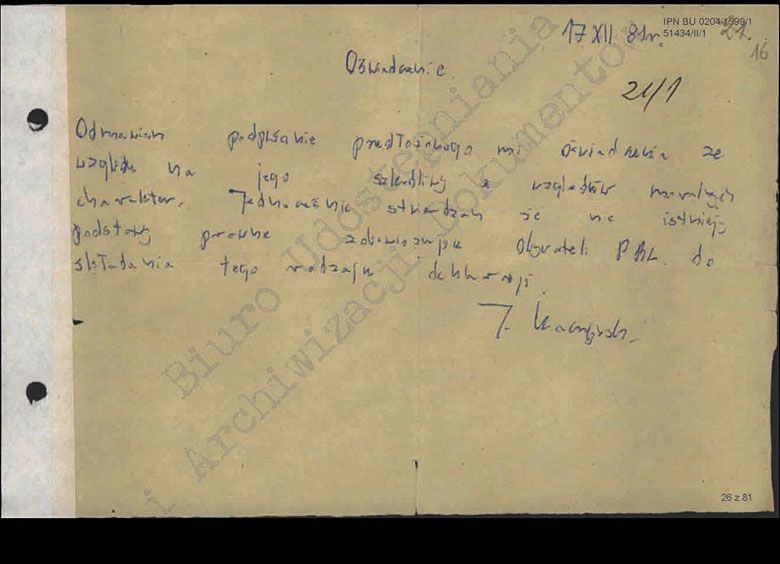 17 XII 81r.
IPN BU 0204/1599/1
51434/II/1
21.
16
Oświadczenie
21/1
Odmawiam podpisanie przedłożonego mi oświadczenia ze
względu na jego szkodliwy z względów moralnych
charakter. Jednocześnie stwierdzam że nie istnieją
podstawy prawne zobowiązujące Obywateli PRL do
składania tego rodzaju deklaracji.
J. Kaczyński
Biuro Udostępniania
i Archiwizacji Dokumentów
26 z 81